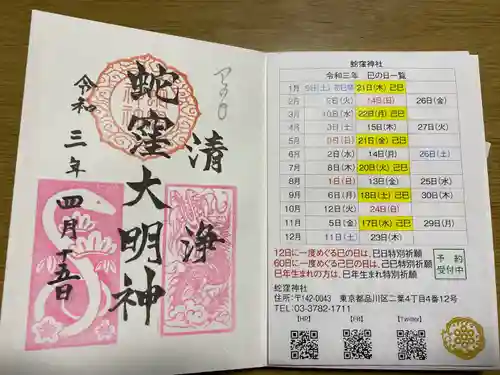 蛇窪大明神
清浄
令和三年四月十五日
蛇窪神社
令和三年 巳の日一覧
1月 9日(土) 初巳祭 21日(木) 己巳
2月 2日(火) 14日(日) 26日(金)
3月 10日(水) 22日(月) 己巳
4月 3日(土) 15日(木) 27日(火)
5月 9日(日) 21日(金) 己巳
6月 2日(水) 14日(月) 26日(土)
7月 8日(木) 20日(火) 己巳
8月 1日(日) 13日(金) 25日(水)
9月 6日(月) 18日(土) 己巳 30日(木)
10月 12日(火) 24日(日)
11月 5日(金) 17日(水) 己巳 29日(月)
12月 11日(土) 23日(木)
12日に一度めぐる巳の日は、巳日特別祈願
60日に一度めぐる己巳の日は、己巳特別祈願
巳年生まれの方は、巳年生まれ特別祈願
予約
受付中
蛇窪神社
住所:〒142-0043 東京都品川区二葉4丁目4番12号
TEL:03-3782-1711
【HP】 【FB】 【Twitter】